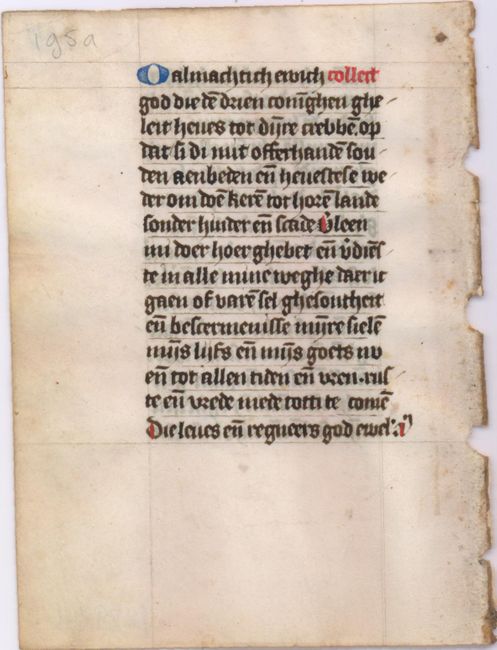 195a
O almachtich ewich collect
god die dē drien coninghen ghe-
leit heues tot dijre crebbē. op
dat si di mit offerhandē sou-
den aenbeden eñ heuestese we
der om doē kerē tot horē lande
sonder hinder eñ scade v̄leen
mi doer hoer ghebet eñ v̄diēs
te in alle mine weghe daer ic
gaen of varē sel ghesontheit
eñ beschermenisse mijre sielē
mijs lijfs eñ mijs goets nv
eñ tot allen tiden eñ vren. rus
te eñ vrede mede totti te comē
Die leues eñ regneers god ewel'.